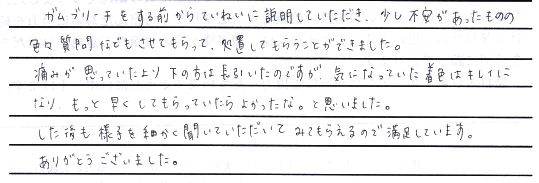 ガムブリーチをする前からていねいに説明していただき、少し不安があったものの
色々質問などもさせてもらって、処置してもらうことができました。
痛みが思っていたより下の方は長引いたのですが、気になっていた着色はキレイに
なり、もっと早くしてもらっていたらよかったな。と思いました。
した後も様子を細かく聞いていただいてみてもらえるので満足しています。
ありがとうございました。